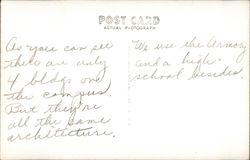 POST CARD
ACTUAL PHOTOGRAPH
As you can see
there are only
4 bldgs on
the campus.
But they're
all the same
architecture.
We use the Armory
and a high
school besides.